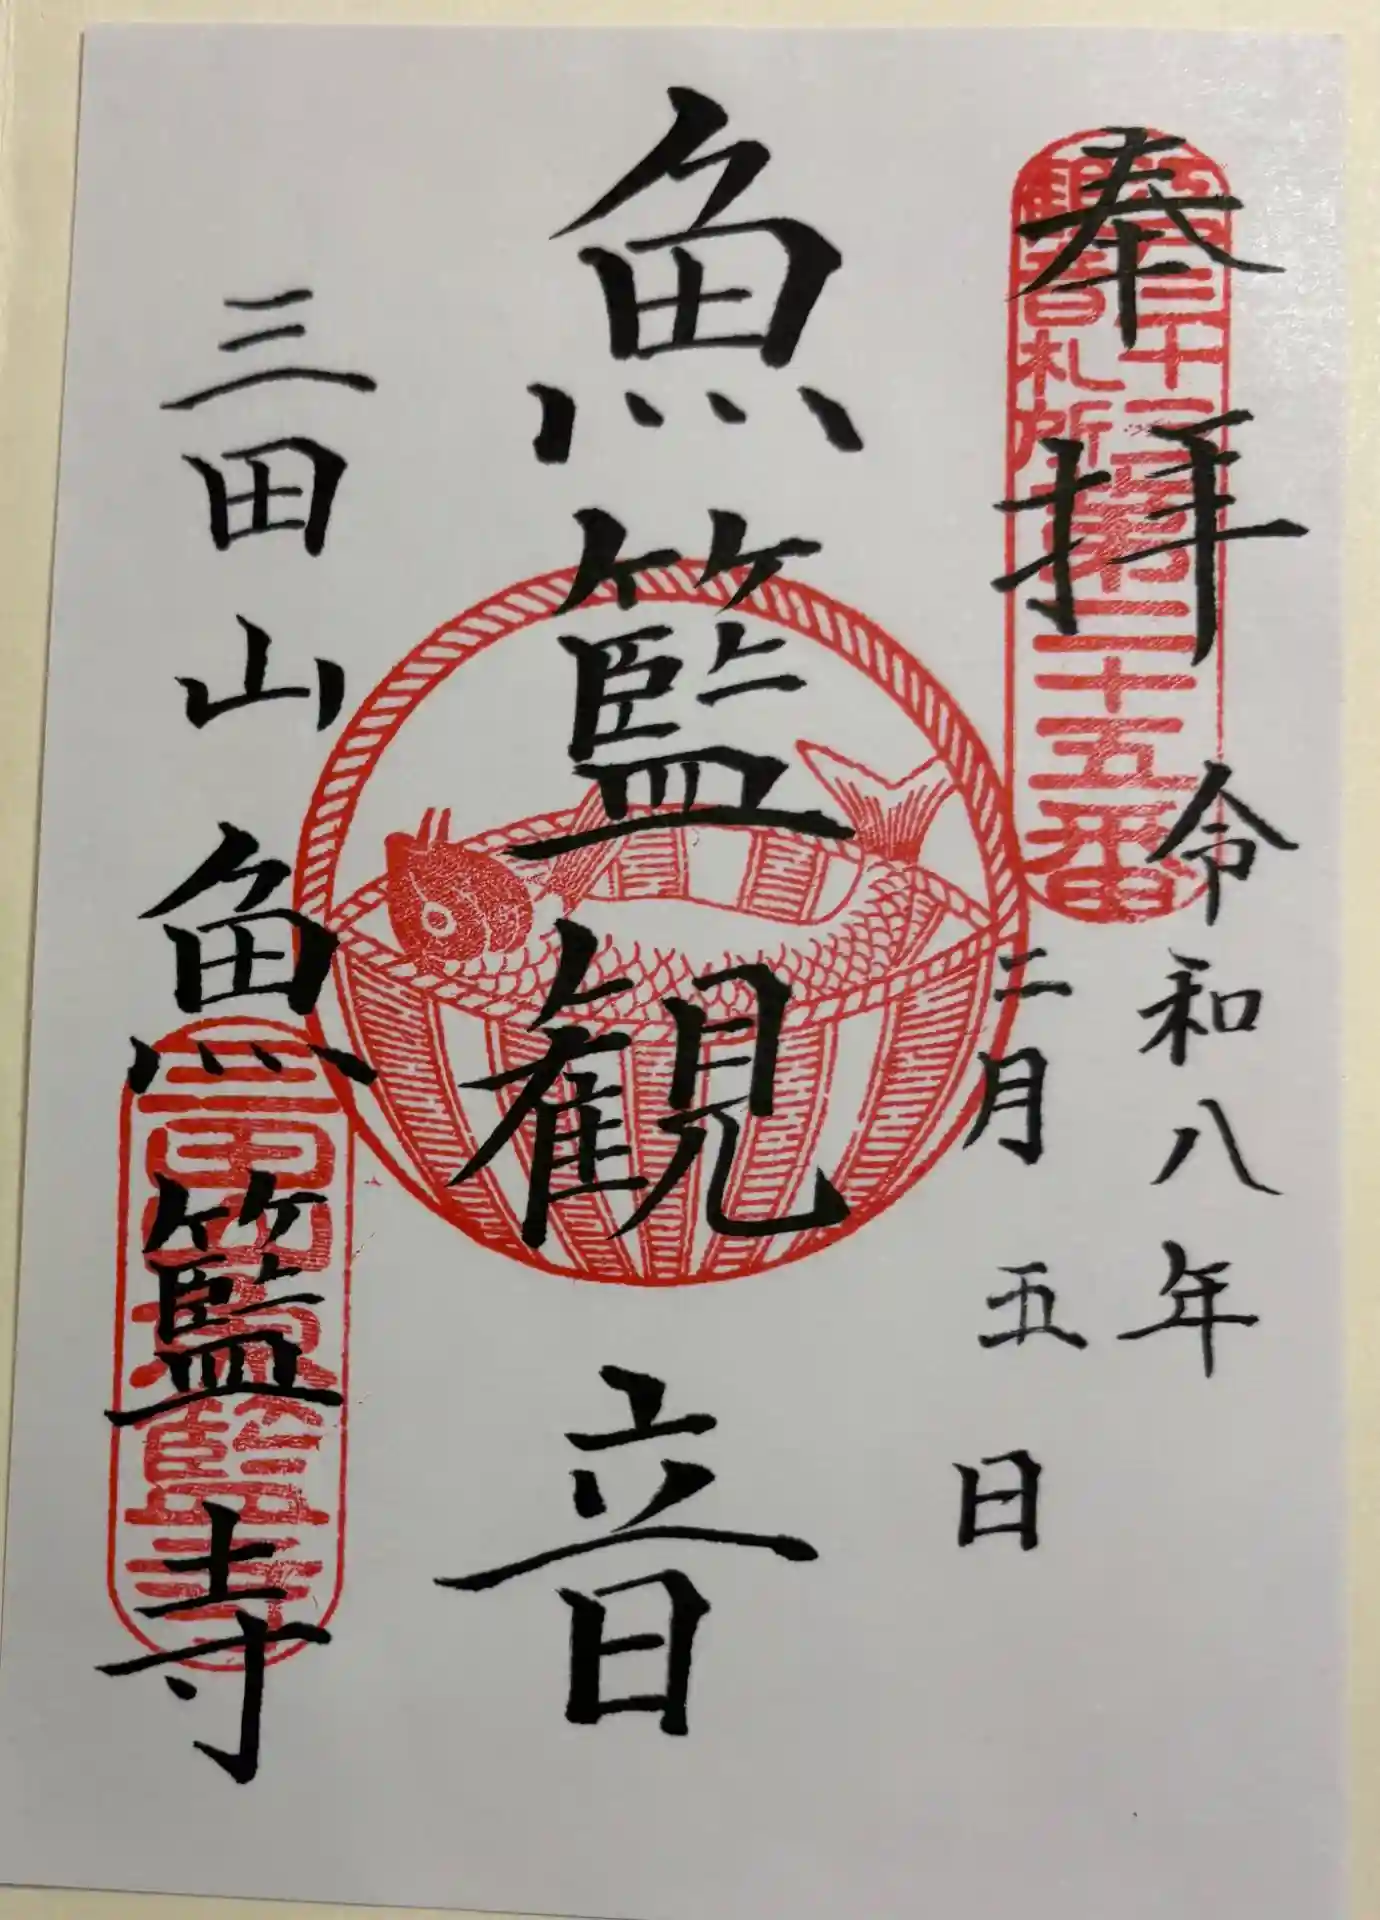 奉拝
令和八年
二月五日
魚籃観音
三田山魚籃寺
三十三
観音札所
第二十五番
三田山魚籃寺